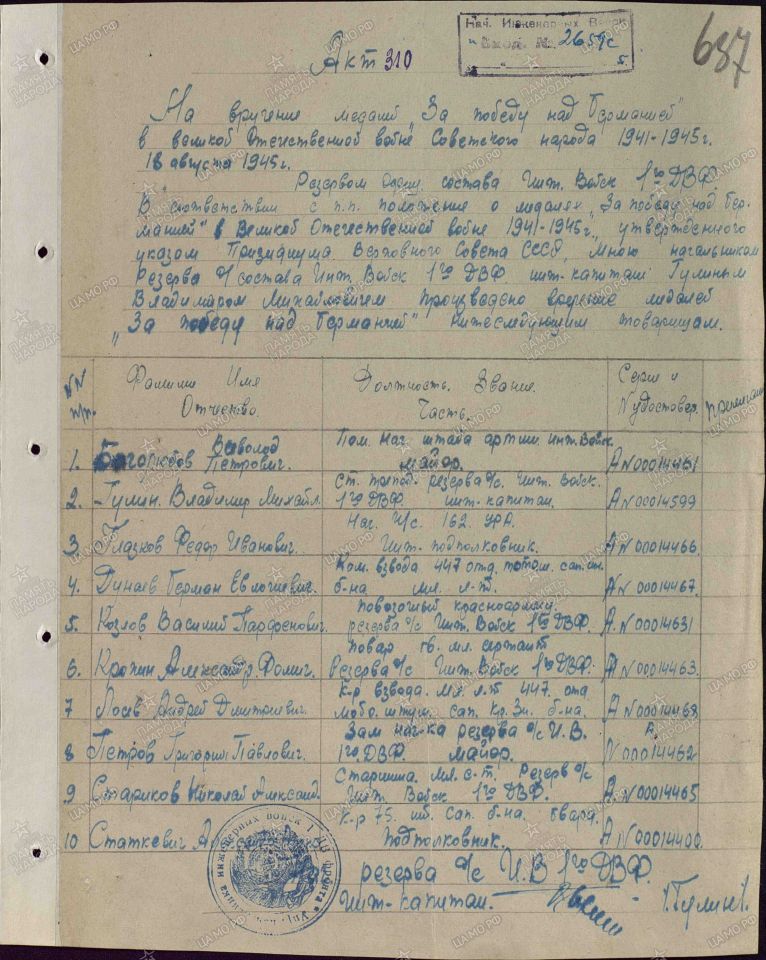 Нач. Инженерных Войск
"Вход. № 2659с
687
Акт 310
На вручение медалей "За победу над Германией"
в великой Отечественной войне Советского народа 1941-1945г.
18 августа 1945г.
Резервом офиц. состава Инж. Войск 1го ДВФ.
В соответствии с п.п. положение о медалях "За победу над Гер-
манией" в Великой Отечественной войне 1941-1945г., утвержденного
указом Призидиума Верховного Совета СССР, мною начальником
Резерва о/состава Инж. Войск 1го ДВФ инж-капитан Гулиным
Владимиром Михайловичем произведено вручение медалей
"За победу над Германией" нижеследующим товарищам.
NN п/п. Фамилия Имя Отчество. Должность. Звание. Часть. Серия и N удостовер. Примечан
1. Боголюбов Всеволод Петрович. Пом. Нач. штаба Инж. Войск. майор. А N 00014461
2. Гулин. Владимир Михайл. Ст. препод. резерва о/с. Инж. Войск. 1го ДВФ. инж-капитан. А N 00014599
3 Глазков Федор Иванович. Нач. И/с. 162. УРА. Инж. подполковник. А N 00014466
4. Дунаев Герман Евлогиевич. Ком. взвода 447 отд. сап. б-на. мл. л-т. А N 00014467.
5. Козлов Василий Парфенович. повозочный красноармеец. резерва о/с Инж. Войск 1го ДВФ. А N 00014631
6. Кропин Александр Фомич. Повар гв. мл. сержант Резерва о/с Инж. Войск 1го ДВФ. А N 00014463.
7 Лосев Андрей Дмитриевич. К-р взвода. Мл. л-т 447. отд мото. штурм. сап. Кр. Зн. б-на. А N 00014468
8 Петров Григорий Павлович. Зам нач-ка резерва о/с И. В. 1го ДВФ. майор. А. N 00014462
9 Стариков Николай Александ. Старшина. Мл. с-т. Резерв о/с Инж. Войск 1го ДВФ. А N 00014465
10 Статкевич К-р 75. сап. б-на. гвард. подполковник. А N 00014400.
резерва о/с И. В 1го ДВФ.
Инж-капитан. /Гулин/.